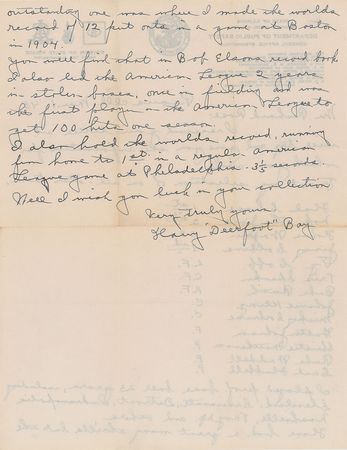 outstanding one was where I made the worlds
record of 12 put outs in a game at Boston
in 1904.
You will find that in Bob Elsons record book
I also led the American League 2 years
in stolen bases, once in fielding and was
the first player in the American League to
get 100 hits one season.
I also hold the worlds record, running
from home to 1st in a regular American
League game at Philadelphia. 3 1/5 seconds.
Well I wish you luck in your collection
Very truly yours
Harry "Deerfoot" Bay